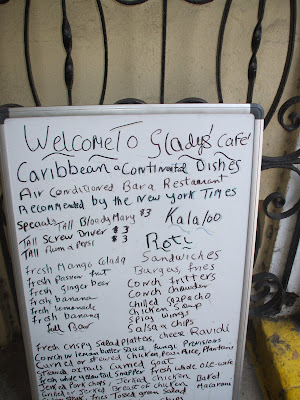 Welcome To Gladys' Café
Caribbean & Continental Dishes
Air Conditioned Bar & Restaurant
Recommended by the New York Times
Specials Tall Bloody Mary $3
Tall Screw Driver $3
Tall Rum & Pepsi $3
Kalaloo
Roti
Fresh Mango
Fresh passion fruit
Fresh ginger beer
Fresh banana
Fresh lemonade
Fresh banana
Full Bar
Sandwiches
Burgers, fries
Conch fritters
Conch chowder
Chilled gazpacho
Chicken Soup
Spicy Wings
Salsa & chips
Fresh crispy salad platters, cheese Ravioli
Conch in lemon butter sauce, fungi, Provisions
Curried or stewed Chicken Peas & Rice, Plantains
Stewed oxtails curried goat
Fresh whole yellowtail Snapper Fresh whole ole-wife
Jerk Pork chops, Jerked Chicken Baked
Grilled or Jerked breast of chicken Macaroni
Fries Tossed green salad